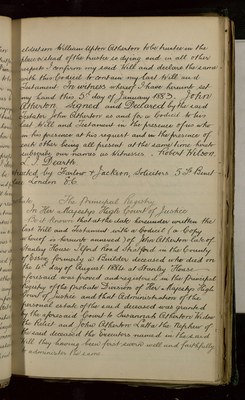 eldest son William Upton Atherton to be trustee in the
place instead of the trustee so dying and in all other
respects I confirm my said Will and declare the same
with this Codicil to contain my last Will and
Testament In witness whereof I have hereunto set
my hand this 5th day of January 1883 John
Atherton Signed and Declared by the said
Testator John Atherton as and for a Codicil to his
last Will and Testament in the presence of us who
in his presence at his request and in the presence of
each other being all present at the same time hereto
subscribe our names as Witnesses Robert Wilson
J. Dearth
Printed by Farlow & Jackson, Solicitors
London E.C.
The Principal Registry
In Her Majesty's High Court of Justice
Be it Known that at the date hereunder written the
last Will and Testament with a Codicil (a Copy
whereof is hereunto annexed) of John Atherton late of
Stanley House Ilford Road Stratford in the County
of Essex formerly a Builder deceased who died on
the day of August 1884 at Stanley House
aforesaid was proved and registered in the Principal
Registry of the Probate Division of Her Majesty's High
Court of Justice and that Administration of the
personal estate of the said deceased was granted
by the aforesaid Court to Susannah Atherton Widow
the Relict and John Atherton the Nephew of
the said deceased the Executors named in the said
Will they having been first sworn well and faithfully
to administer the same